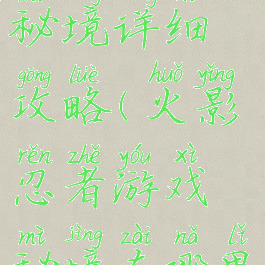 秘境详细
gōng lüè huǒ yǐng
攻略(火影
rěn zhě yóu xì
忍者游戏
mì jìng zài nǎ lǐ
秘境在哪里